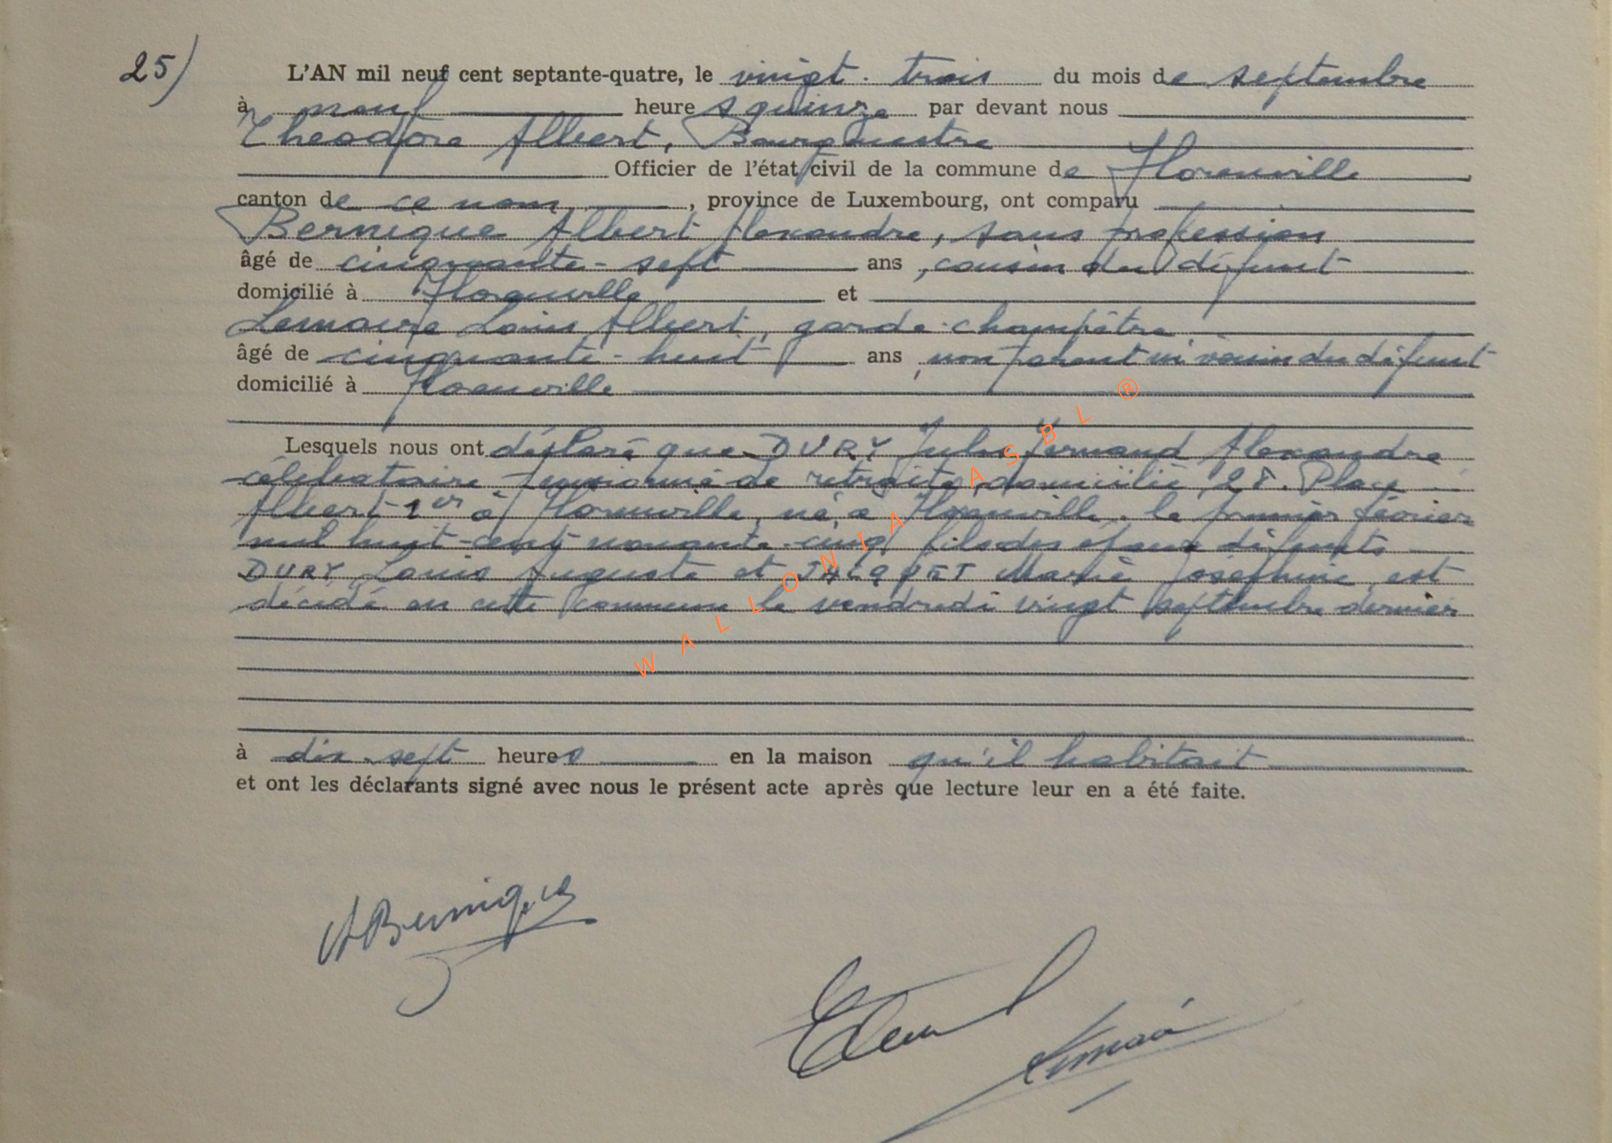 25) L'AN mil neuf cent septante-quatre, le vingt-trois du mois de septembre
à neuf heures quinze par devant nous
Théodore Albert, Bourgmestre
Officier de l'état civil de la commune de Florenville
canton de ce nom, province de Luxembourg, ont comparu
Bernique Albert Alexandre, sans profession
âgé de cinquante-sept ans, cousin du défunt
domicilié à Florenville et
Lemaire Louis Albert, garde-champêtre
âgé de cinquante-huit ans, non parent ni voisin du défunt
domicilié à Florenville
Lesquels nous ont déclaré que DURY Jules Fernand Alexandre
célibataire pensionné de retraite, domicilié, 28. Place
Albert 1er à Florenville, né à Florenville, le premier février
mil huit-cent nonante-cinq fils des époux défunts
DURY Louis Auguste et JACQUET Marie Josephine, est
décédé en cette commune le vendredi vingt septembre dernier
à dix-sept heures en la maison qu'il habitait
et ont les déclarants signé avec nous le présent acte après que lecture leur en a été faite.
WALLONIA ASBL ®
A Bernique